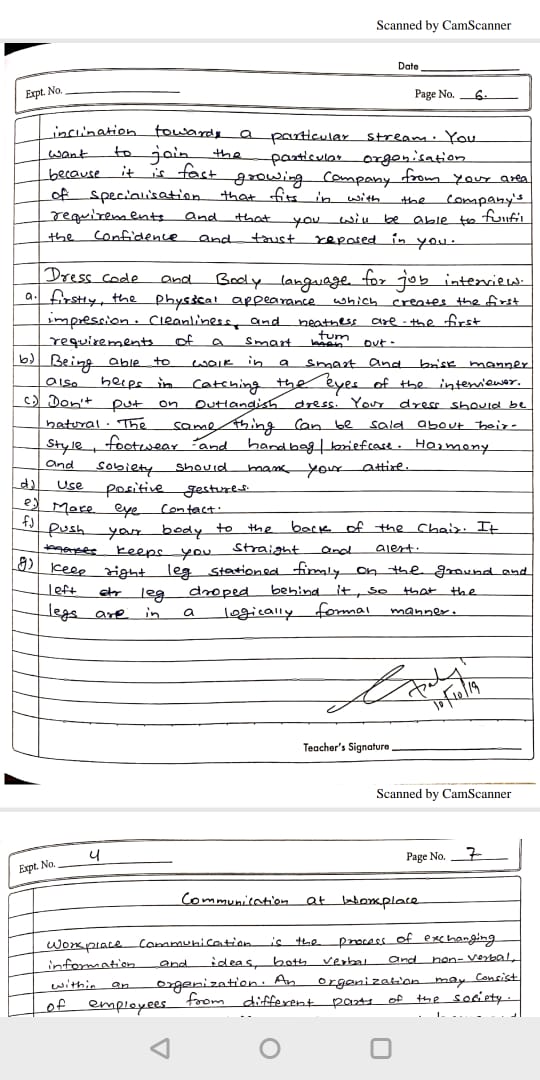 Scanned by CamScanner
Date
Expt. No.
Page No. 6.
inclination towards a particular stream. You
want to join the particular organisation
because it is fast growing Company from your area
of specialisation that fits in with the company's
requirements and that you will be able to fulfil
the confidence and trust reposed in you.
Dress code and Body language for job interview.
a. firstly, the physical appearance which creates the first
impression. Cleanliness, and neatness are the first
requirements of a smart turn out.
b) Being able to walk in a smart and brisk manner
also helps in catching the eyes of the interviewer.
c) Don't put on outlandish dress. Your dress should be
natural. The same thing can be said about hair-
style, footwear and handbag | briefcase. Harmony
and sobiety should mark your attire.
d) Use positive gestures.
e) Make eye contact.
f) push your body to the back of the chair. It
makes keeps you straight and alert.
g) keep right leg stationed firmly on the ground and
left leg droped behind it, so that the
legs are in a logically formal manner.
10/10/19
Teacher's Signature
Scanned by CamScanner
Expt. No. 4
Page No. 7
Communication at Workplace
Workplace Communication is the process of exchanging
information and ideas, both verbal and non-verbal,
within an organization. An organization may consist
of employees from different parts of the society.